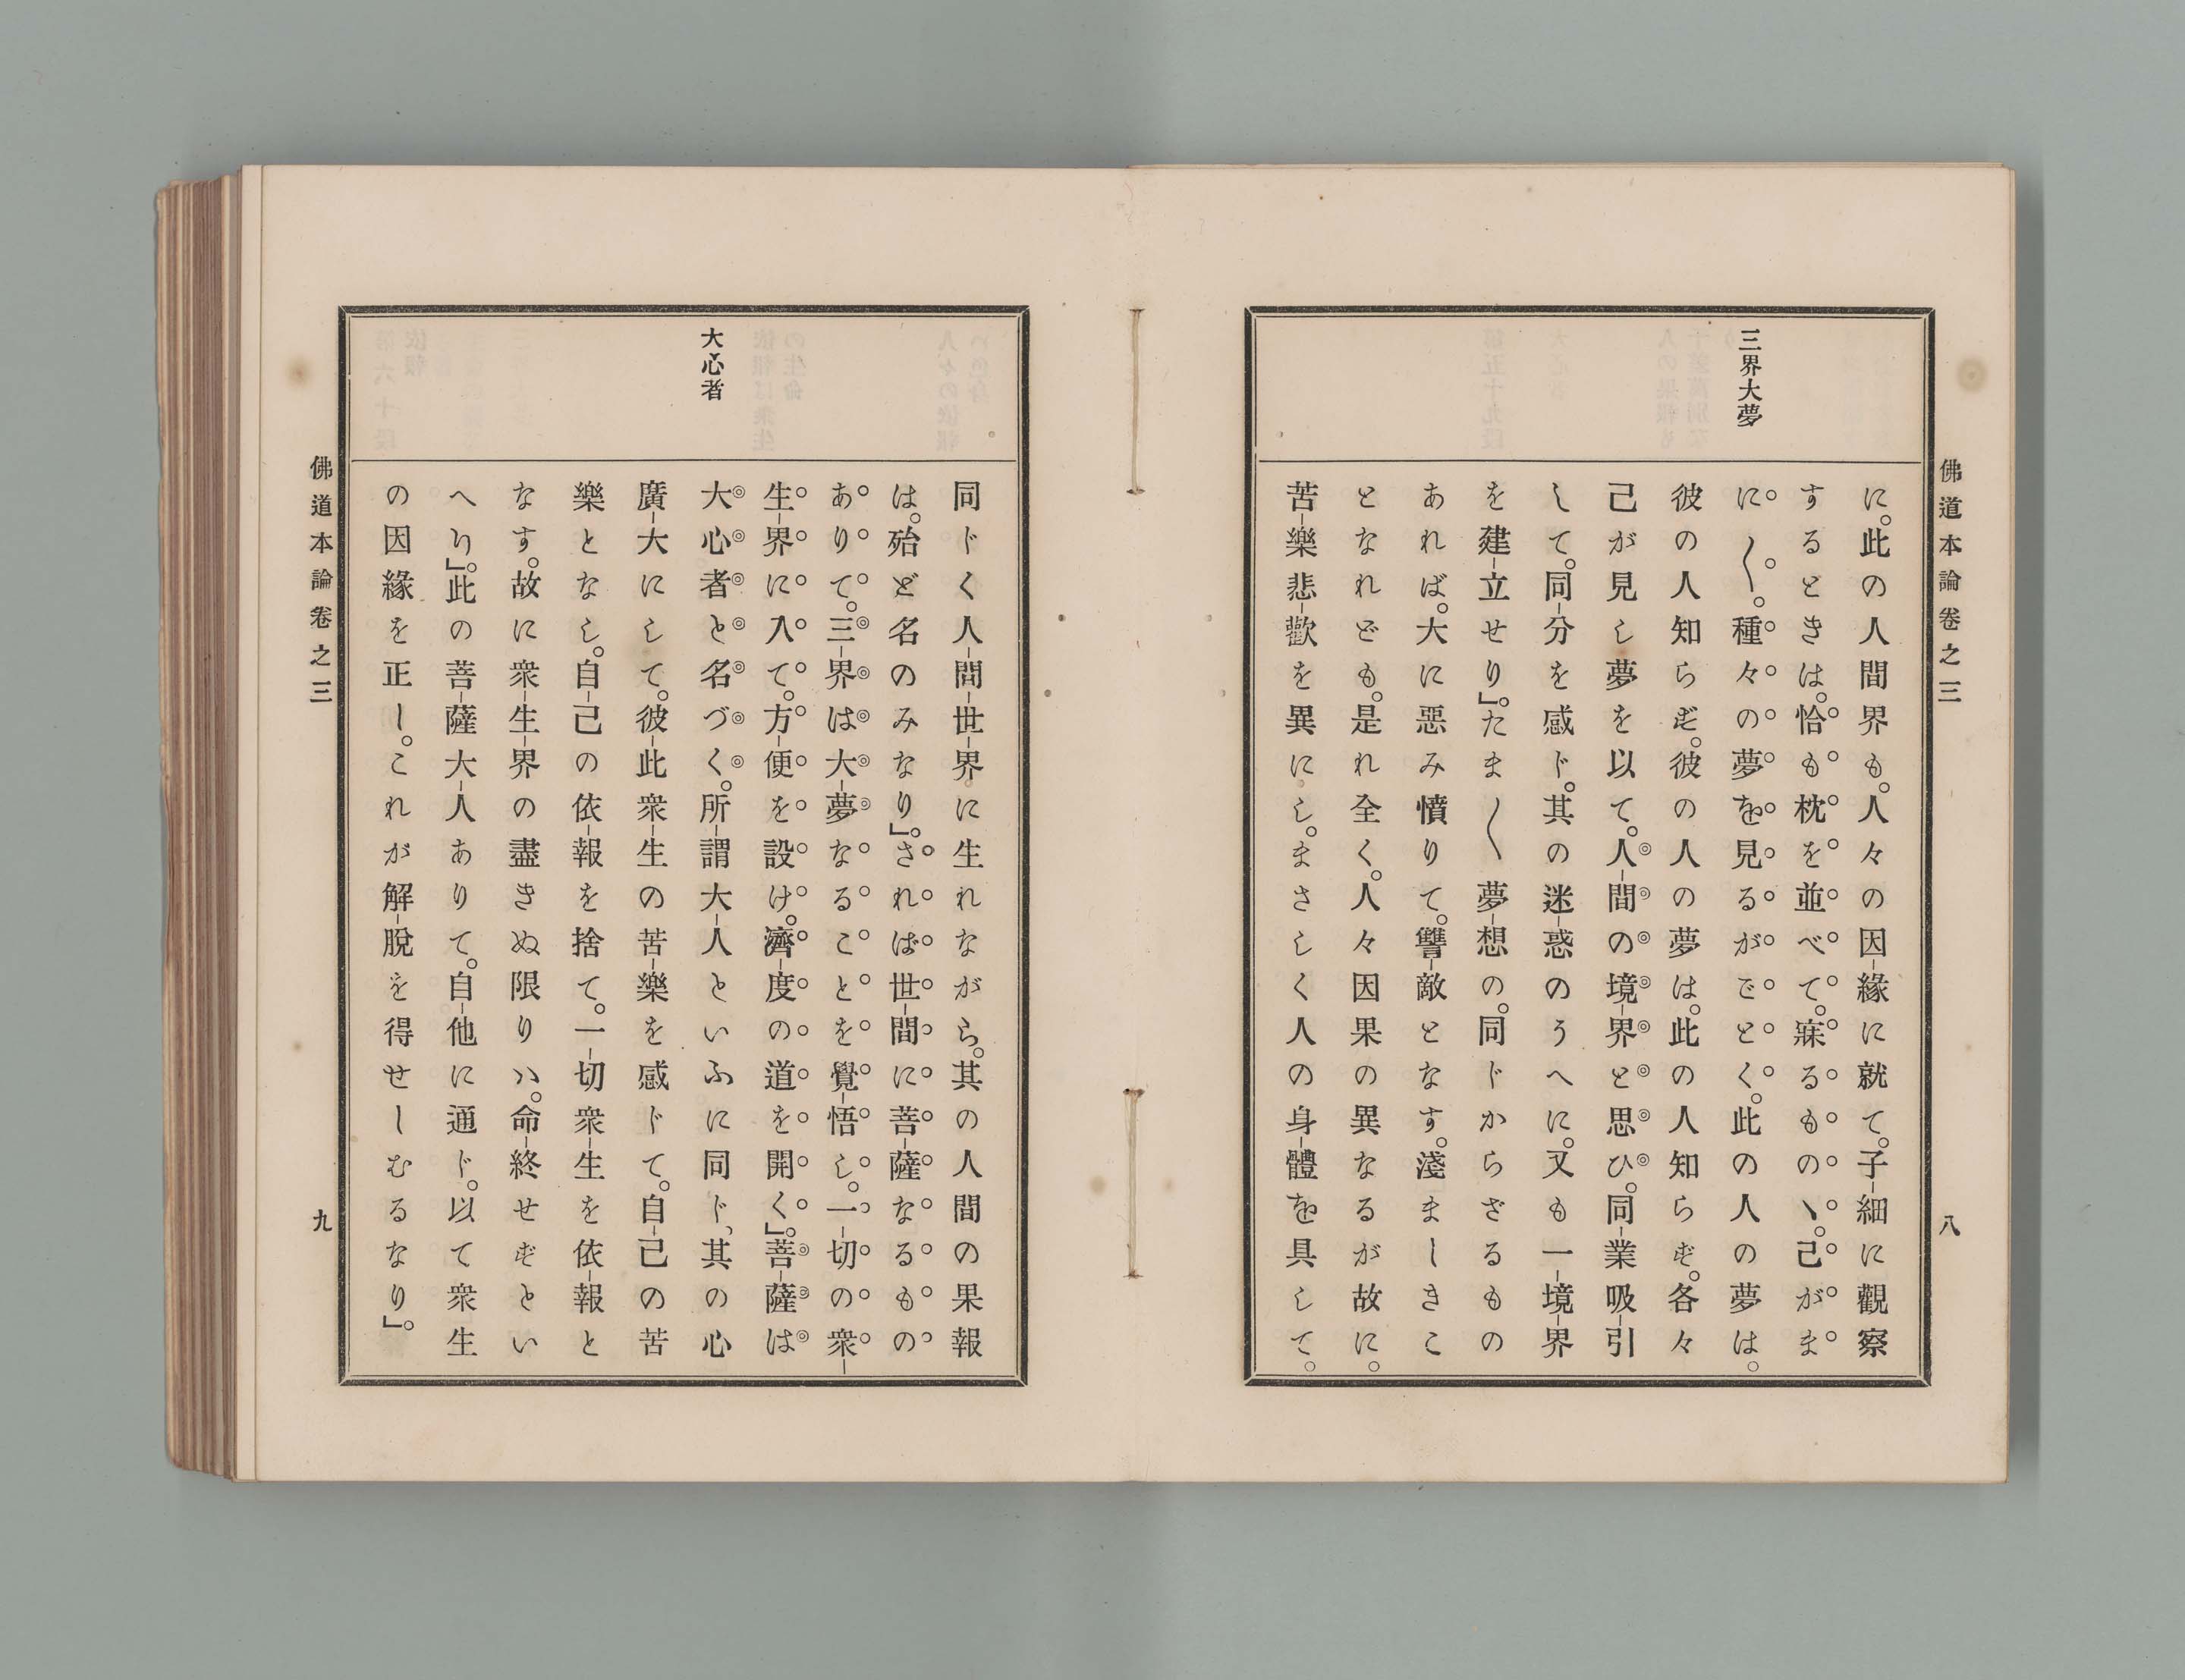 佛道本論卷之三
八
三界大夢
に。此の人間界も。人々の因緣に就て。子細に觀察
するときは。恰も枕を並べて。寐るものヽ。己がま
に〱。種々の夢を見るがごとく。此の人の夢は。
彼の人知らず。彼の人の夢は。此の人知らず。各々
己が見し夢を以て。人間の境界と思ひ。同業吸引
して。同分を感ド。其の迷惑のうへに。又も一境界
を建立せり」。たま〱夢想の。同じからざるもの
あれば。大に惡み憤りて。讐敵となす。淺ましきこ
となれども。是れ全く。人々因果の異なるが故に。
苦樂悲歡を異にし。まさしく人の身體を具して。
大心者
同じく人間世界に生れながら。其の人間の果報
は。殆ど名のみなり」。されば世間に菩薩なるもの
ありて。三界は大夢なることを覺悟し。一切の衆
生界に入て。方便を設け。濟度の道を開く」。菩薩は
大心者と名づく。所謂大人といふに同じ。其の心
廣大にして。彼此衆生の苦樂を感じて。自己の苦
樂となし。自己の依報を捨て。一切衆生を依報と
なす。故に衆生界の盡きぬ限りハ。命終せずとい
へり」。此の菩薩大人ありて。自他に通じ。以て衆生
の因緣を正し。これが解脫を得せしむるなり」。
佛道本論卷之三
九